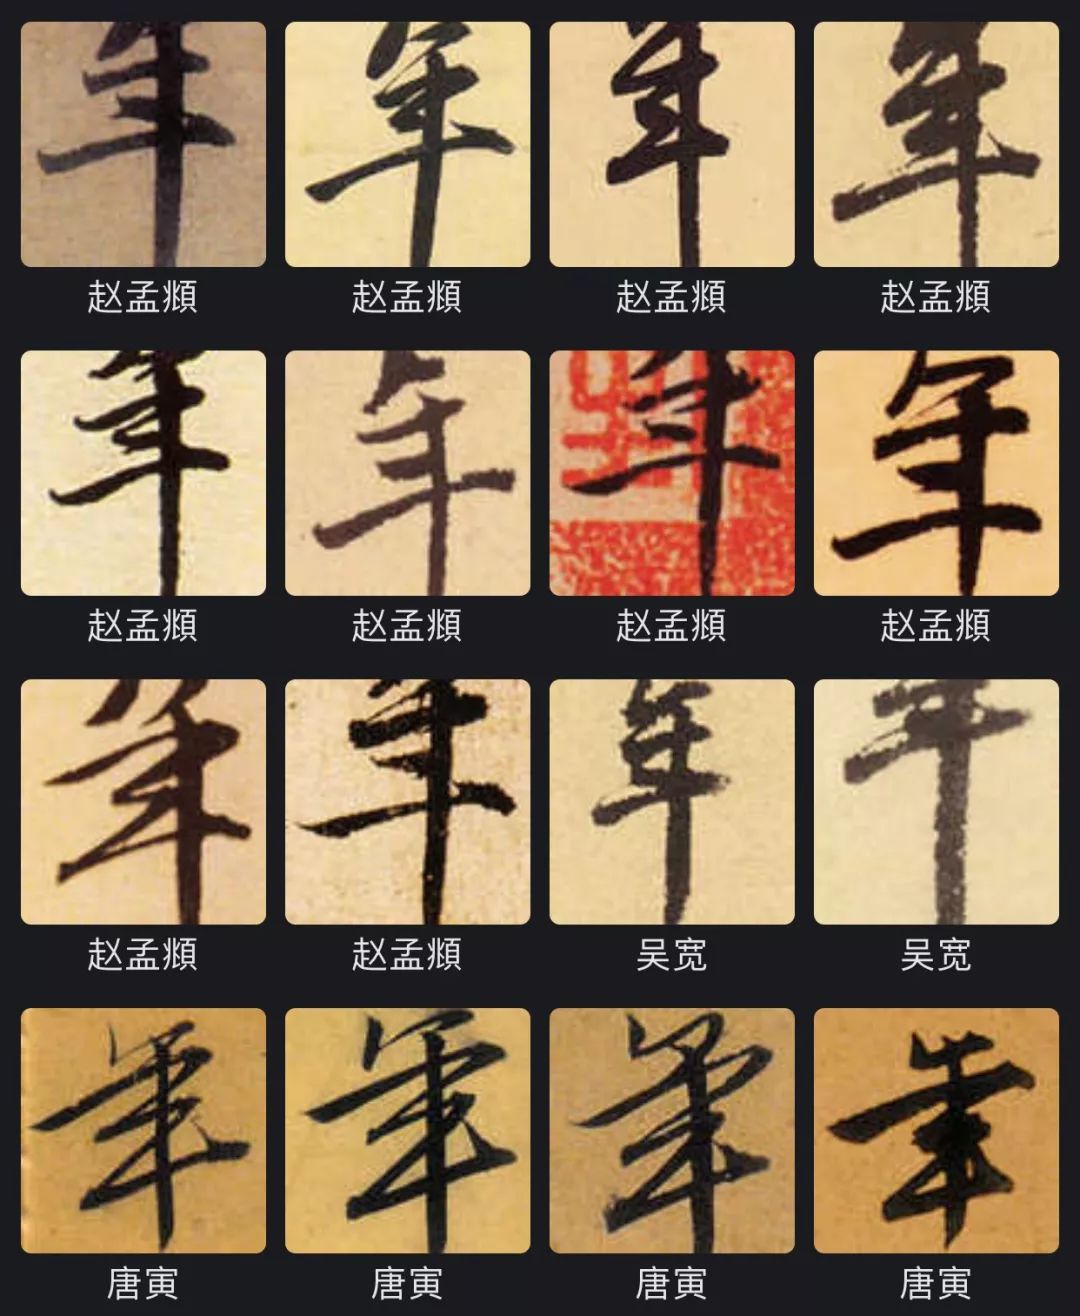 年 年 年 年
赵孟頫 赵孟頫 赵孟頫 赵孟頫
年 年 年 年
赵孟頫 赵孟頫 赵孟頫 赵孟頫
年 年 年 年
赵孟頫 赵孟頫 吴宽 吴宽
年 年 年 年
唐寅 唐寅 唐寅 唐寅